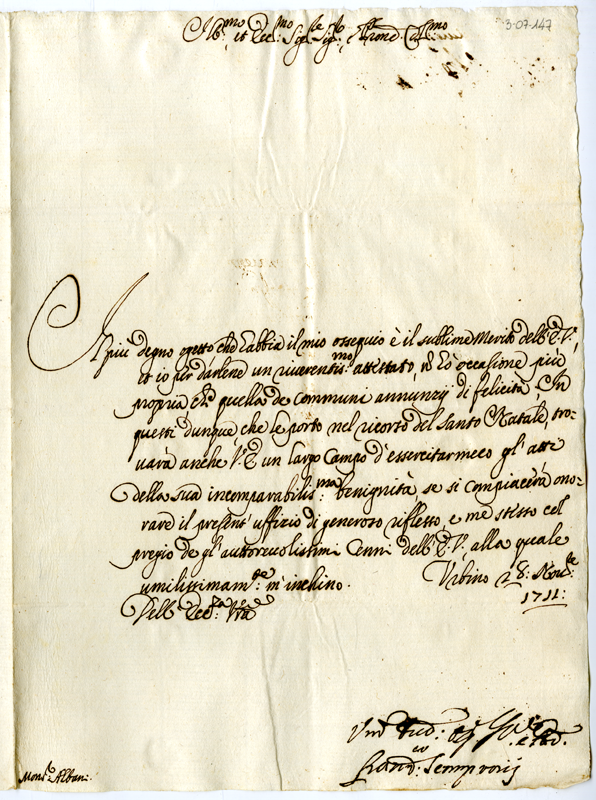 3-07-147
Ill.mo et Ecc.mo Sig.re Sig.r P̄rone Col.mo
Il più degno ogetto che habbia il mio ossequio è il sublime Merito dell'E.V.
et io per darlene un riverentis.mo attestato, nō hò occasione più
propria che quella de communi annunzij di felicità; In
questi dunque che le porto nel ricorso del Santo Natale, tro-
varà anche V.E. un largo campo d'essercitar meco gl'atti
della sua incomparabilis.ma benignità, se si compiacerà ono-
rare il present'uffizio di generoso riflesso, e me stesso col
pregio de gl'autorevolissimi Cenni dell'E.V., alla quale
umilissimam.te m'inchino. Urbino 28: Nov.e
1711:
Dell'Ecc.za V̄ra
Um
Fran.co Sempronij
Mons.r Albani: